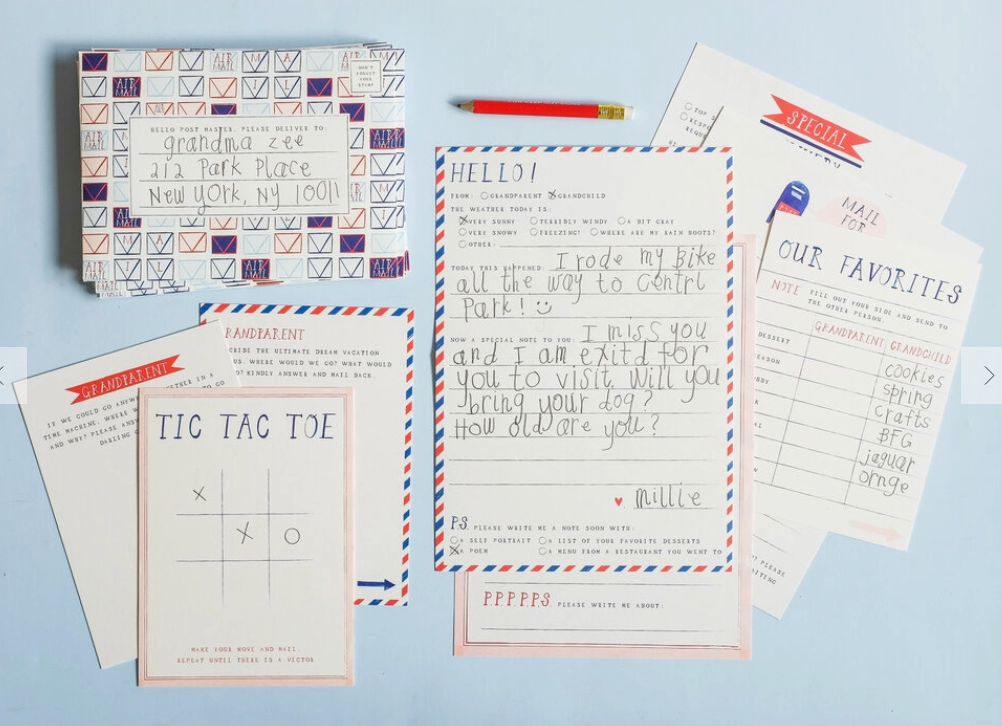 AIR MAIL
DON'T
FORGET
YOUR
STAMP
HELLO POST MASTER, PLEASE DELIVER TO:
grandma zee
212 Park Place
New York, NY 10011
SPECIAL
MAIL
FOR
HELLO!
FROM: GRANDPARENT GRANDCHILD
THE WEATHER TODAY IS:
VERY SUNNY TERRIBLY WINDY A BIT GRAY
VERY SNOWY FREEZING! WHERE ARE MY RAIN BOOTS?
OTHER:
TODAY THIS HAPPENED: I rode my Bike
all the way to Centrl
Park!
NOW A SPECIAL NOTE TO YOU: I miss you
and I am exitd for
you to visit. Will you
bring your dog?
How old are you?
millie
P.S. PLEASE WRITE ME A NOTE SOON WITH:
A SELF PORTRAIT A LIST OF YOUR FAVORITE DESSERTS
A POEM A MENU FROM A RESTAURANT YOU WENT TO
P.P.P.P.P.S. PLEASE WRITE ME ABOUT:
OUR FAVORITES
NOTE FILL OUT YOUR SIDE AND SEND TO
THE OTHER PERSON.
GRANDPARENT GRANDCHILD
DESSERT cookies
spring
crafts
BFG
jaguar
ornge
PLEASE
GRANDPARENT
THE ULTIMATE DREAM VACATION
US. WHERE WOULD WE GO? WHAT WOULD
KINDLY ANSWER AND MAIL BACK.
GRANDPARENT
IF WE COULD GO
TIME MACHINE, WHERE
AND WHY? PLEASE
DARLING
TIC TAC TOE
X
X O
MAKE YOUR MOVE AND MAIL.
REPEAT UNTIL THERE IS A VICTOR